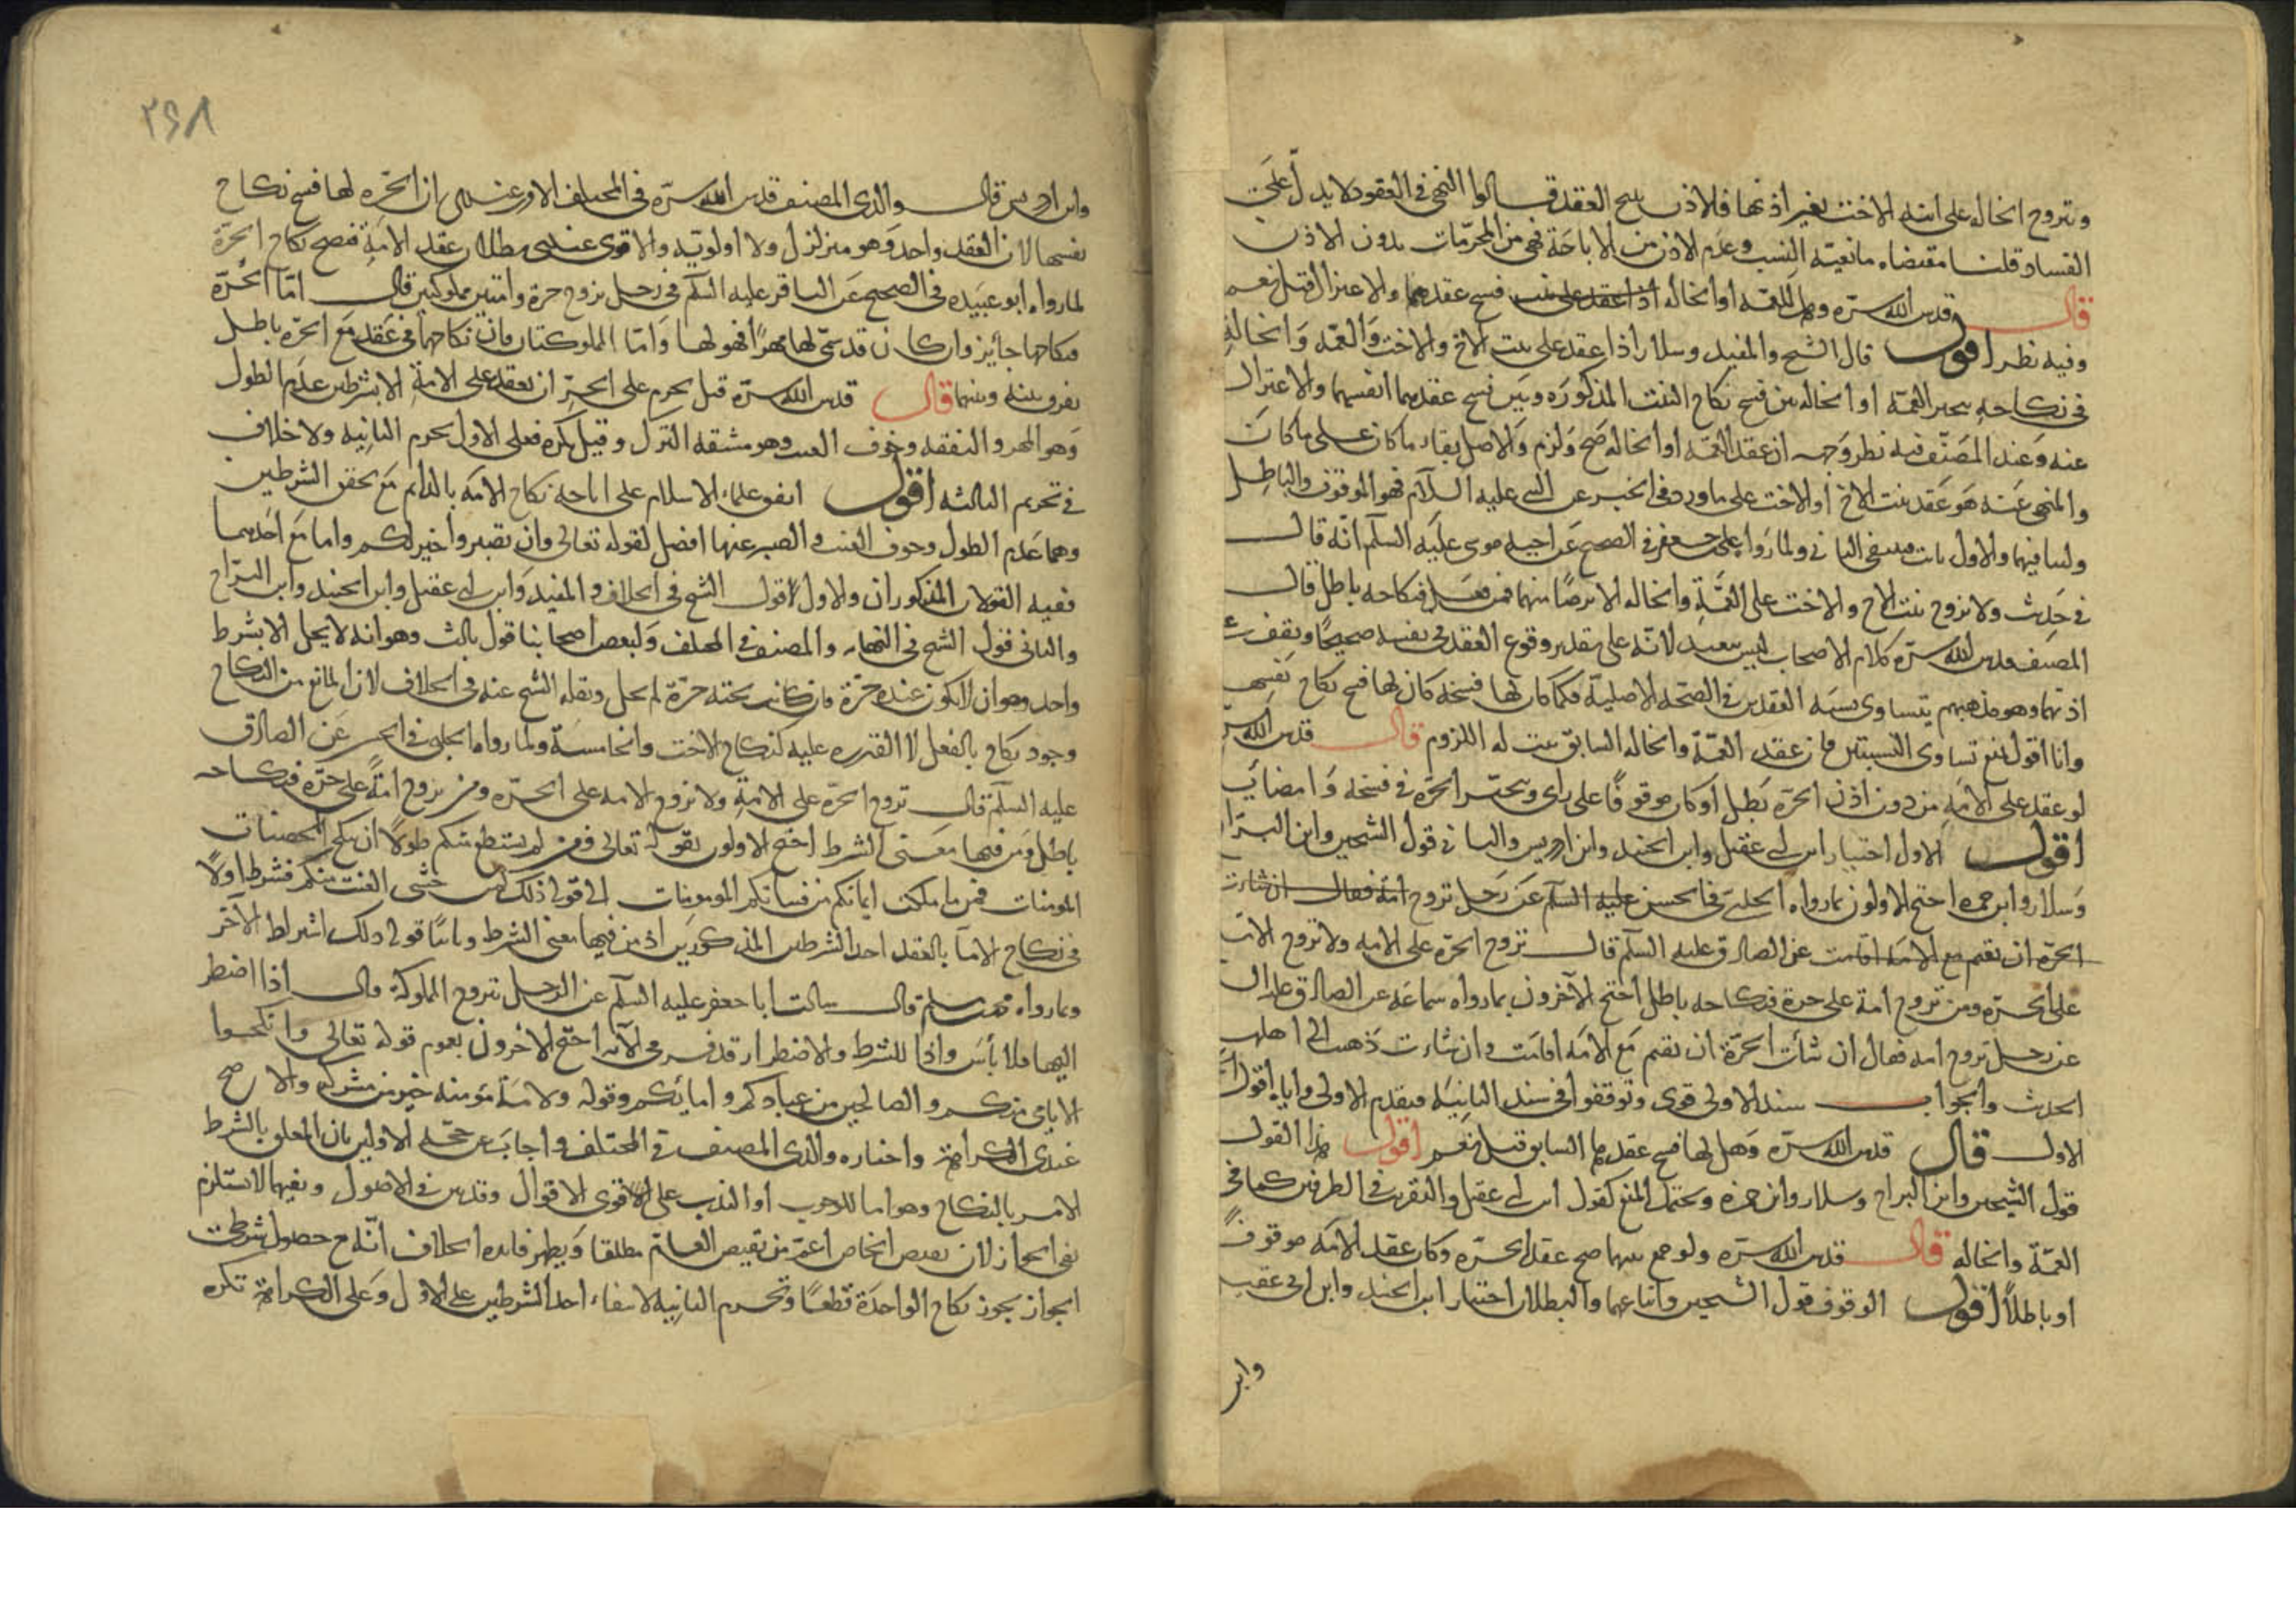 وتتزوج الخالة على ابنة الاخت بغير اذنها فلاذن يبيح العقد قالوا النهى فى العقود لا يدل على
الفساد قلنا مقتضاه مانعية النسب وعدم الاذن من الاباحة فهى من المحرمات بدون الاذن
قال قدس الله سره وهل للعمة او الخالة فسخ عقدهما والاعتزال قيل نعم
وفيه نظر اقول قال الشيخ والمفيد وسلار اذا عقد على بنت الاخ والاخت والعمة والخالة
فى نكاحه تتخير العمة او الخالة بين فسخ نكاح البنت المذكورة وبين فسخ عقدهما انفسهما والاعتزال
عنه وعند المصنف فيه نظر وجهه ان عقد العمة او الخالة صح ولزم والاصل بقاء ما كان على ما كان
والمنهى عنه هو عقد بنت الاخ او الاخت على ما ورد فى الخبر عن النبى عليه السلام فهو الموقوف والباطل
ولتنافيهما والاول ثابت فينتفى الثانى ولما رواه على بن جعفر فى الصحيح عن اخيه موسى عليه السلم انه قال
فى حديث ولا تزوج بنت الاخ والاخت على العمة والخالة الا برضا منهما فمن فعل فنكاحه باطل قال
المصنف قدس الله سره كلام الاصحاب ليس ببعيد لانه على تقدير وقوع العقد فى نفسه صحيحا ويقف على
اذنهما وهو مذهبهم يتساوى نسبة العقدين فى الصحة الاصلية فكما كان لها فسخه كان لها فسخ نكاح نفسها
وانا اقول نمنع تساوى النسبتين فان عقد العمة والخالة السابق يثبت له اللزوم قال قدس الله سره
لو عقد على الامة من دون اذن الحرة بطل او كان موقوفا على راى ويتخير الحرة فى فسخه وامضائه
اقول الاول اختيار ابن ابى عقيل وابن الجنيد وابن ادريس والثانى قول الشيخين وابن البراج
وسلار وابن حمزه احتج الاولون بما رواه الحلبى فى الحسن عليه السلم عن رجل تزوج امة فقال ان شاءت
الحرة ان تقيم مع الامة اقامت عن الصادق عليه السلم قال تزوج الحرة على الامة ولا تزوج الامة
على الحرة ومن تزوج امة على حرة فنكاحه باطل احتج الاخرون بما رواه سماعة عن الصادق عليه السلام
عن رجل تزوج امة فقال ان شاءت الحرة ان تقيم مع الامة اقامت وان شاءت ذهبت الى اهلها
الحديث والجواب سند الاولى قوى وتوقفوا فى سند الثانية فيقدم الاولى واياه اقول
الاول قال قدس الله سره وهل لها فسخ عقدها السابق قيل نعم اقول هذا القول
قول الشيخين وابن البراج وسلار وابن حمزه ويحتمل المنع كقول ابن ابى عقيل والتقريب فى الطرفين كما فى
العمة والخالة قال قدس الله سره ولو جمع بينهما صح عقد الحرة وكان عقد الامة موقوفا
او باطلا اقول الوقوف قول الشيخين واتباعهما والبطلان اختيار ابن الجنيد وابن ابى عقيل
وابن
٢٤٨
وابن ادريس قال والدى المصنف قدس الله سره فى المختلف الاقرب عندى ان الحرة لها فسخ نكاح
نفسها لان العقد واحد وهو متزلزل ولا اولوية والاقوى عندى بطلان عقد الامة فيصح نكاح الحرة
لما رواه ابو عبيده فى الصحيح عن الباقر عليه السلم فى رجل تزوج حرة وامتين مملوكتين قال اما الحرة
فنكاحها جائز وان كان قد سمى لها مهرا فهو لها واما المملوكتان فان نكاحهما فى عقد مع الحرة باطل
يفرق بينه وبينهما قال قدس الله سره قيل يحرم على الحر ان يعقد على الامة الا بشرطين عدم الطول
وهو المهر والنفقة وخوف العنت وهو مشقة الترك وقيل يكره فعلى الاول يحرم الثانية ولا خلاف
فى تحريم الثالثة اقول اتفق علماء الاسلام على اباحة نكاح الامة بالدايم مع تحقق الشرطين
وهما عدم الطول وخوف العنت والصبر عنها افضل لقوله تعالى وان تصبروا خير لكم واما مع احدهما
ففيه القولان المذكوران والاول قول الشيخ فى الخلاف والمفيد وابن ابى عقيل وابن الجنيد وابن البراج
والثانى قول الشيخ فى النهاية والمصنف فى المختلف ولبعض اصحابنا قول ثالث وهو انه لا يحل الا بشرط
واحد وهو ان لا يكون عنده حرة فان كانت تحته حرة لم يحل ونقله الشيخ عنه فى الخلاف لان المانع من النكاح
وجود نكاح بالفعل لا القدرة عليه كنكاح الاخت والخامسة ولما رواه الحلبى فى الحسن عن الصادق
عليه السلم قال تزوج الحرة على الامة ولا تزوج الامة على الحرة ومن تزوج امة على حرة فنكاحه
باطل ومن فيها معنى الشرط احتج الاولون بقوله تعالى فمن لم يستطع منكم طولا ان ينكح المحصنات
المومنات فمن ما ملكت ايمانكم من فتياتكم المومنات الى قوله ذلك لمن خشى العنت منكم فشرط اولا
فى نكاح الاماء بالعقد احد الشرطين المذكورين اذ من فيها معنى الشرط وثانيا قوله ذلك اشراط الآخر
وبما رواه محمد بن مسلم قال سالت ابا جعفر عليه السلم عن الرجل يتزوج المملوكة قال اذا اضطر
اليها فلا بأس واذا للشرط والاضطرار قد فسر فى الآية احتج الاخرون بعموم قوله تعالى وانكحوا
الايامى منكم والصالحين من عبادكم وامائكم وقوله ولامة مؤمنة خير من مشركة والاصح
عندى الكراهة واختاره والدى المصنف فى المختلف واجاب عن حجة الاولين بان المعلق بالشرط
الامر بالنكاح وهو اما للوجوب او الندب على الاقوى الاقوال وقد بين فى الاصول ونفيهما لا يستلزم
نفى الجواز لان نقيض الخاص اعم من نقيض العام مطلقا ويظهر فايده الخلاف انه مع حصول شرطى
الجواز يجوز نكاح الواحدة قطعا وتحرم الثانية لانتفاء احد الشرطين على الاول وعلى الكراهة تكره